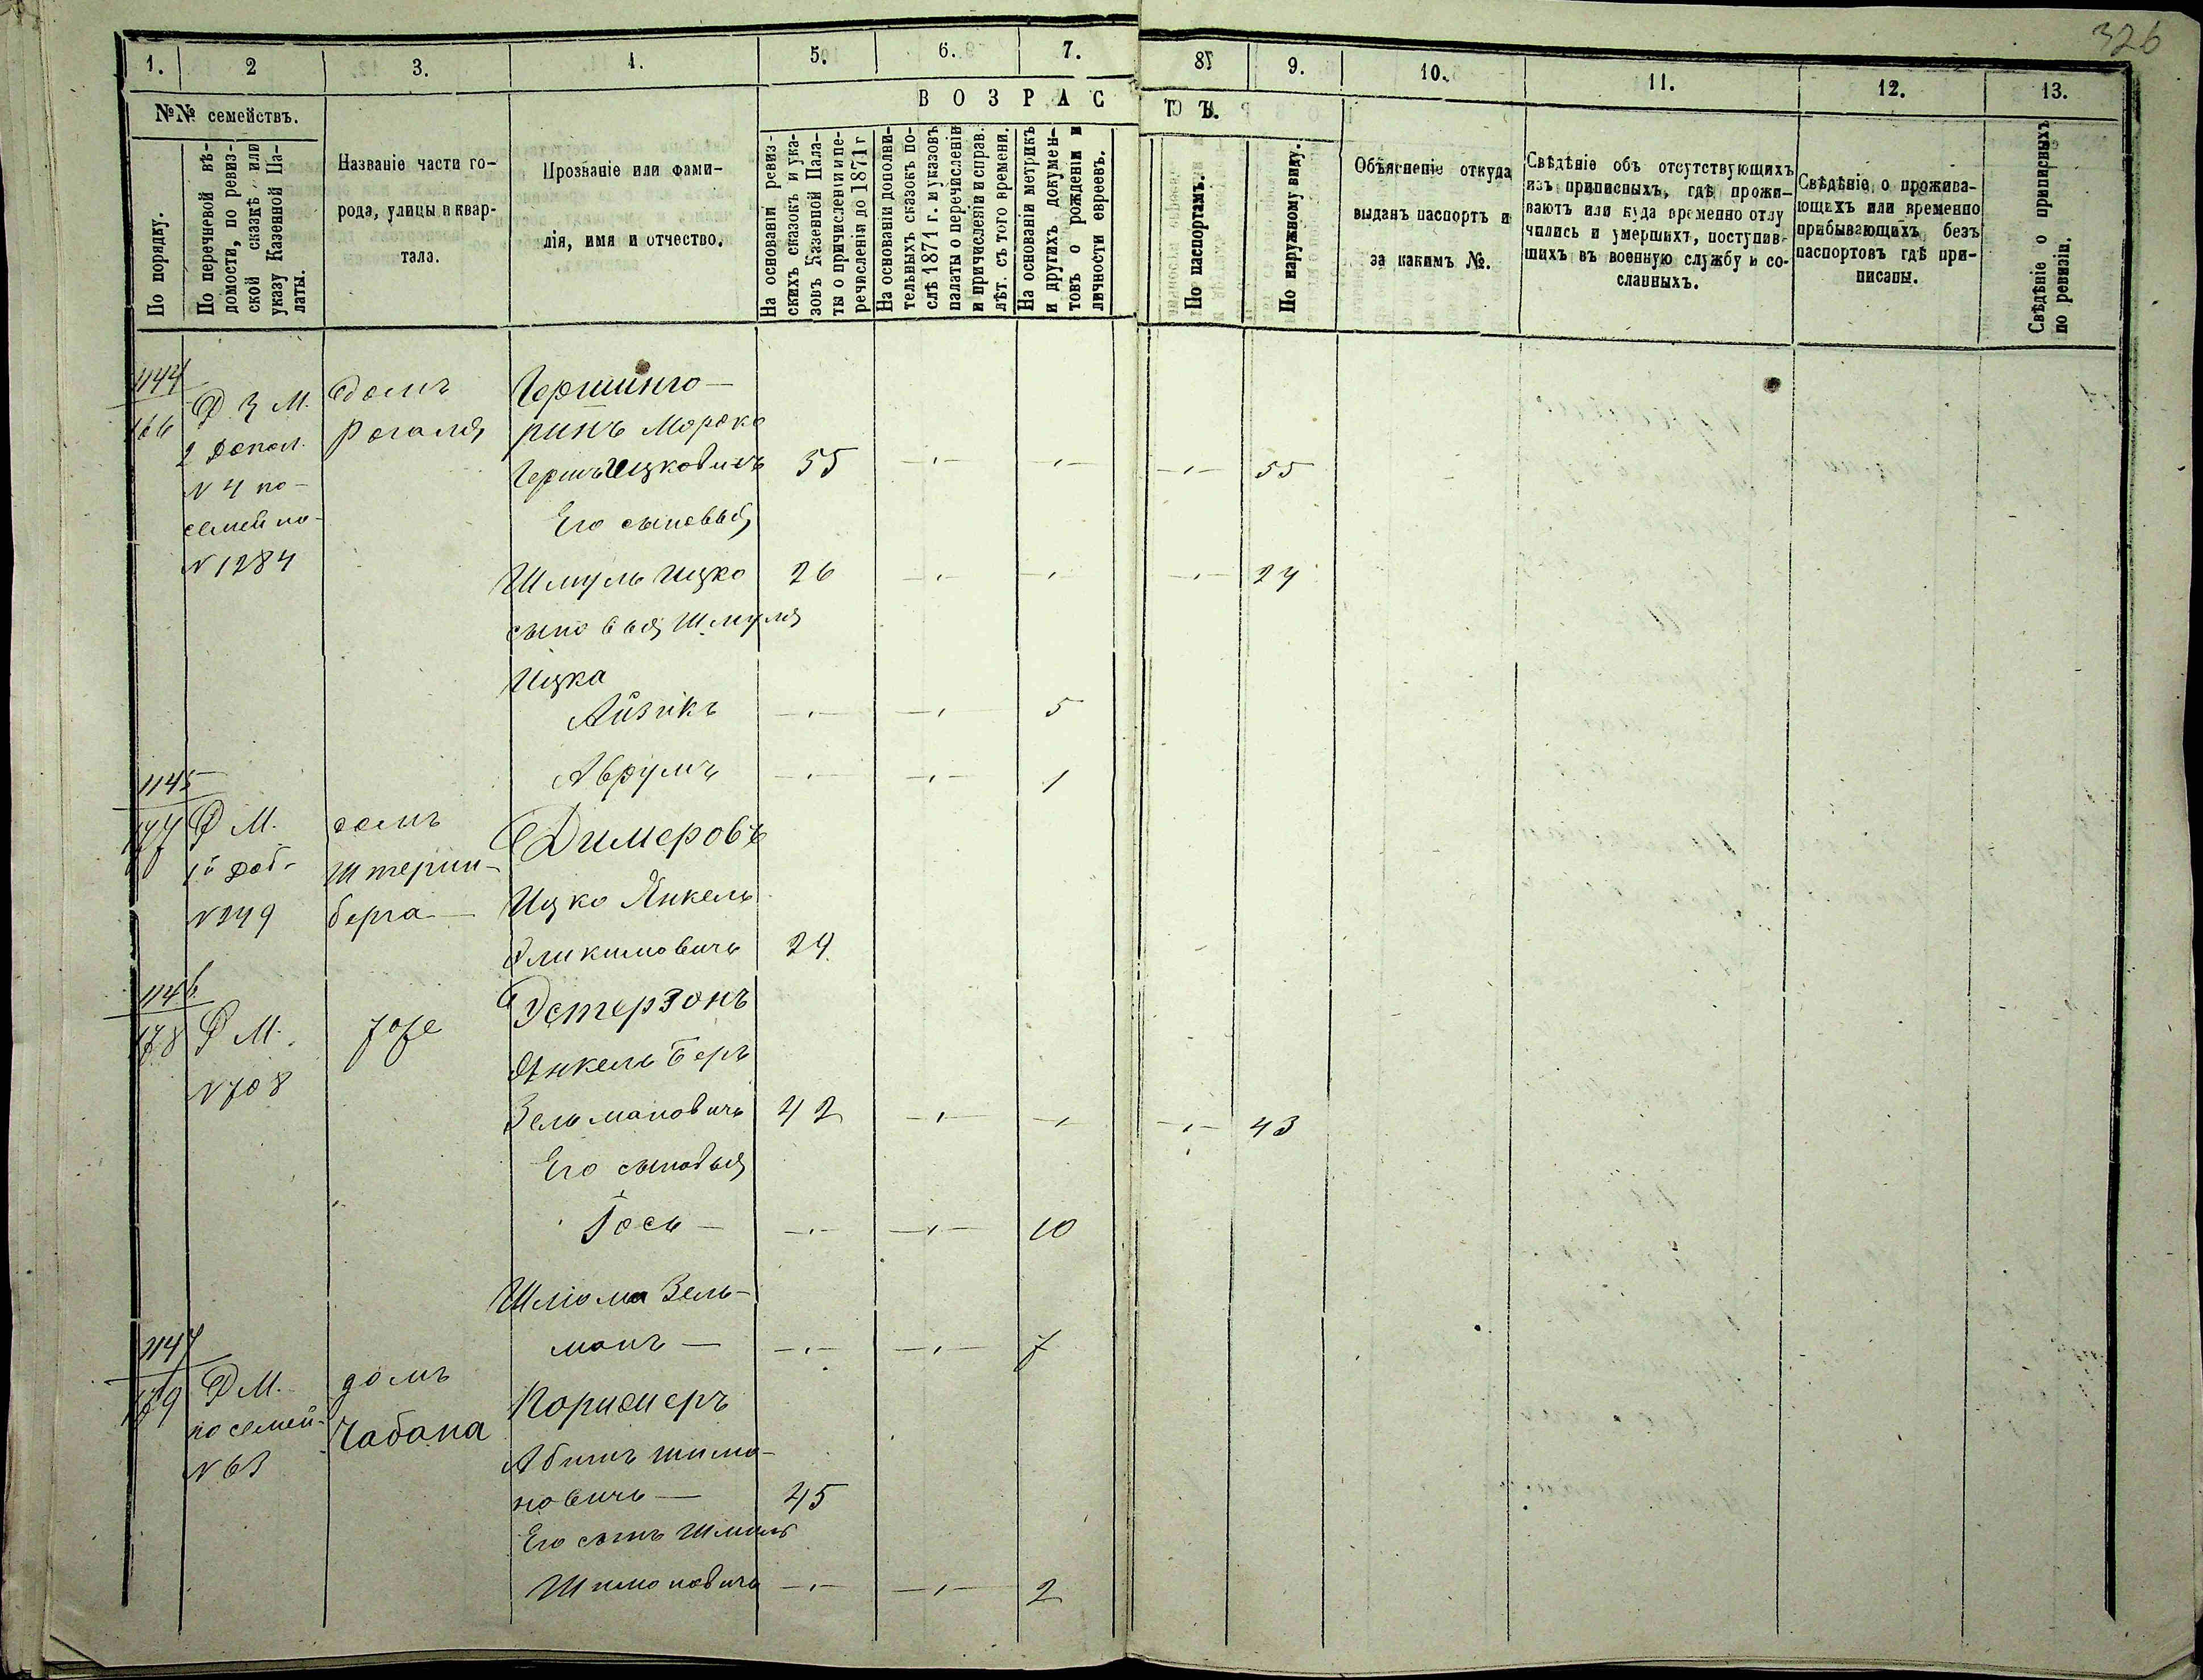 326
1. 2 3. 4. 5. 6. 7. 8. 9. 10. 11. 12. 13.
№№ семействъ.
ВОЗРАСТЪ.
По порядку.
По перечневой вѣ-
домости, по ревиз-
ской сказкѣ или
указу Казенной Па-
латы.
Названіе части го-
рода, улицы и квар-
тала.
Прозваніе или фами-
лія, имя и отчество.
На основаніи ревиз-
скихъ сказокъ и ука-
зовъ Казенной Пала-
ты о причисленіи и пе-
речисленіи до 1871 г
На основаніи дополни-
тельныхъ сказокъ по-
слѣ 1871 г. и указовъ
палаты о перечисленіи
и причисленіи и справ.
лѣт. съ того времени.
На основаніи метрикъ
и другихъ докумен-
товъ о рожденіи и
личности евреевъ.
По паспортамъ.
По наружному виду.
Объясненіе откуда
выданъ паспортъ и
за какимъ №.
Свѣдѣніе объ отсутствующихъ
изъ приписныхъ, гдѣ прожи-
ваютъ или куда временно отлу
чились и умершихъ, поступив-
шихъ въ военную службу и со-
сланныхъ.
Свѣдѣніе о прожива-
ющихъ или временно
прибывающихъ безъ
паспортовъ гдѣ при-
писаны.
Свѣдѣніе о приписныхъ
по ревизіи.
Ф. З М. домъ Гершинго-
166 2 допол. Рогаля ринъ Мордко
N 4 по- Гершъ Ицковичъ 55 —,— —,— —,— 55
семейно- Его сыновья
N 1284 Шмуль Ицко 26 —,— —,— —,— 27
сыновья Шмуля
Ицка
Айзикъ —,— —,— 5
1145 Аврумъ —,— —,— 1
177 Ф М. домъ Димеровъ
1й доб. Штерин-
N 249 берга — Ицко Янкель
Эликимовичъ 29
1146 Эстерзонъ
178 Ф М. тоже
Янкель Беръ
N 708 Зельмановичъ 42 —,— —,— —,— 43
Его сыновья
Іось — —,— —,— 10
Шлома Зель-
1147 манъ — —,— —,— 7
179 Ф М. домъ
по семей- Чабана
N 63 Абишъ Шимо-
новичъ — 45
Его сынъ Шмиль
Шимоновичъ —,— —,— 2